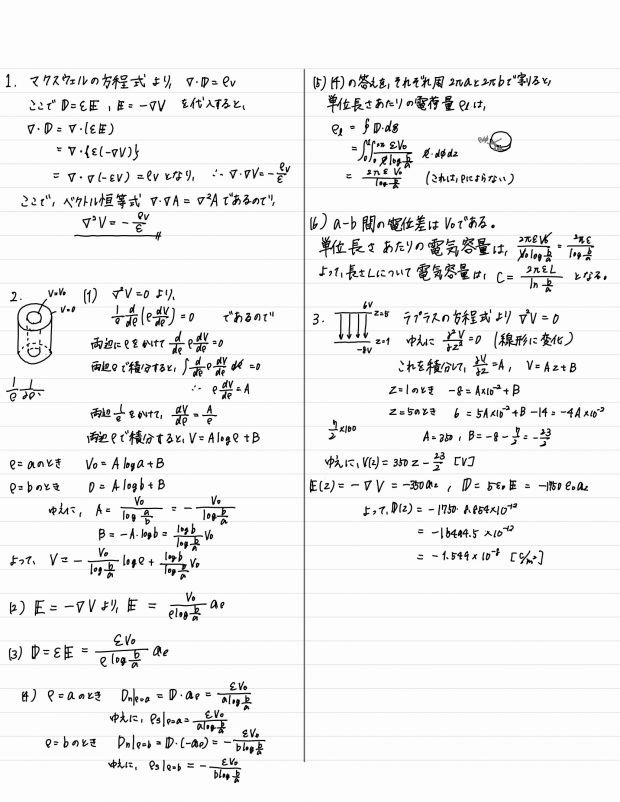 1. マクスウェルの方程式より, ∇・D = ρv
ここで D = εE, E = -∇V を代入すると,
∇・D = ∇・(εE)
= ∇・{ε(-∇V)}
= ∇・∇(-εV) = ρv となり, ∴ ∇・∇V = -ρv/ε
ここで, ベクトル恒等式 ∇・∇A = ∇²A であるので,
∇²V = -ρv/ε
2.
V=V₀
V=0
(1) ∇²V = 0 より,
1/ρ d/dρ (ρ dV/dρ) = 0 であるので
両辺にρをかけて d/dρ ρ dV/dρ = 0
両辺ρで積分すると, ∫ d/dρ ρ dV/dρ dρ = 0
∴ ρ dV/dρ = A
両辺 1/ρ をかけて, dV/dρ = A/ρ
両辺ρで積分すると, V = A log ρ + B
ρ=aのとき V₀ = A log a + B
ρ=bのとき 0 = A log b + B
ゆえに, A = V₀/log a/b = - V₀/log b/a
B = -A・log b = log b/log b/a V₀
よって, V = - V₀/log b/a log ρ + log b/log b/a V₀
(2) E = -∇V より, E = V₀/ρ log b/a aρ
(3) D = εE = εV₀/ρ log b/a aρ
(4) ρ=aのとき Dn|ρ=a = D・aρ = εV₀/a log b/a
ゆえに, ρs|ρ=a = εV₀/a log b/a
ρ=bのとき Dn|ρ=b = D・(-aρ) = - εV₀/b log b/a
ゆえに, ρs|ρ=b = - εV₀/b log b/a
(5) (4) の答えを, それぞれ周 2πaと2πbで割ると,
単位長さあたりの電荷量 ρl は,
ρl = ∮ D・ds
= ∫₀¹∫₀²π εV₀/ρ log b/a ρ・dφdz
= 2πεV₀/log b/a (これは, ρによらない)
(6) a-b 間の電位差は V₀である。
単位長さあたりの電気容量は, 2πεV₀/V₀ log b/a = 2πε/log b/a
よって, 長さLについて電気容量は, C = 2πεL/ln b/a となる。
3.
6V
z=5
z=1
-8V
ラプラスの方程式より ∇²V = 0
ゆえに ∂²V/∂z² = 0 (線形に変化)
これを積分して, ∂V/∂z = A, V = Az + B
z=1のとき -8 = A×10⁻² + B
z=5のとき 6 = 5A×10⁻² + B -14 = -4A×10⁻²
7/2 ×100
A = 350, B = -8 - 7/2 = -23/2
ゆえに, V(z) = 350z - 23/2 [V]
E(z) = -∇V = -350az, D = ε₀E = -1750ε₀az
よって, D(z) = -1750・8.854×10⁻¹²
= -15494.5 ×10⁻¹²
= -1.549×10⁻⁸ [C/m²]